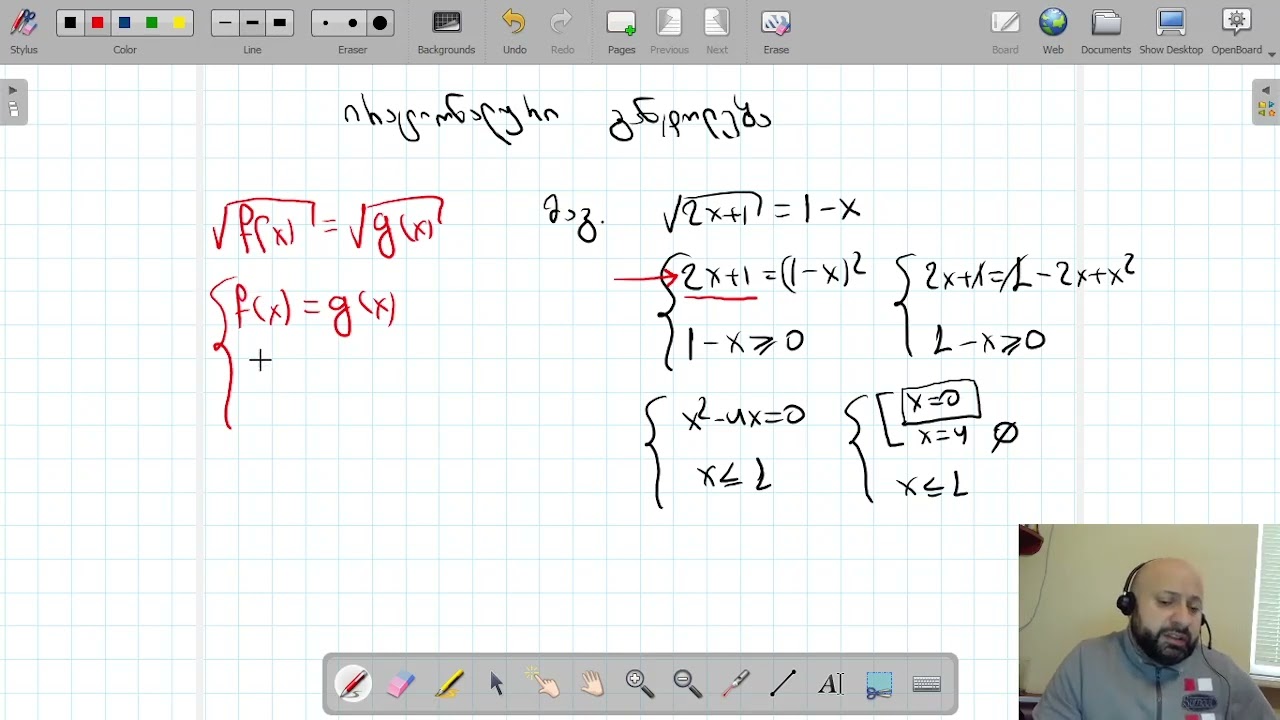 Stylus
Color
Line
Eraser
Backgrounds
Undo
Redo
Pages
Previous
Next
Erase
Board
Web
Documents
Show Desktop
OpenBoard
ირაციონალური განტოლება
√f(x) = √g(x)
{ f(x) = g(x)
მაგ. √2x+1 = 1-x
{ 2x+1 = (1-x)²
1-x ⩾ 0
{ 2x+1 = 1-2x+x²
1-x ⩾ 0
{ x²-4x=0
x ≤ 1
{ [ x=0
x=4 ∅
x ≤ 1
AI